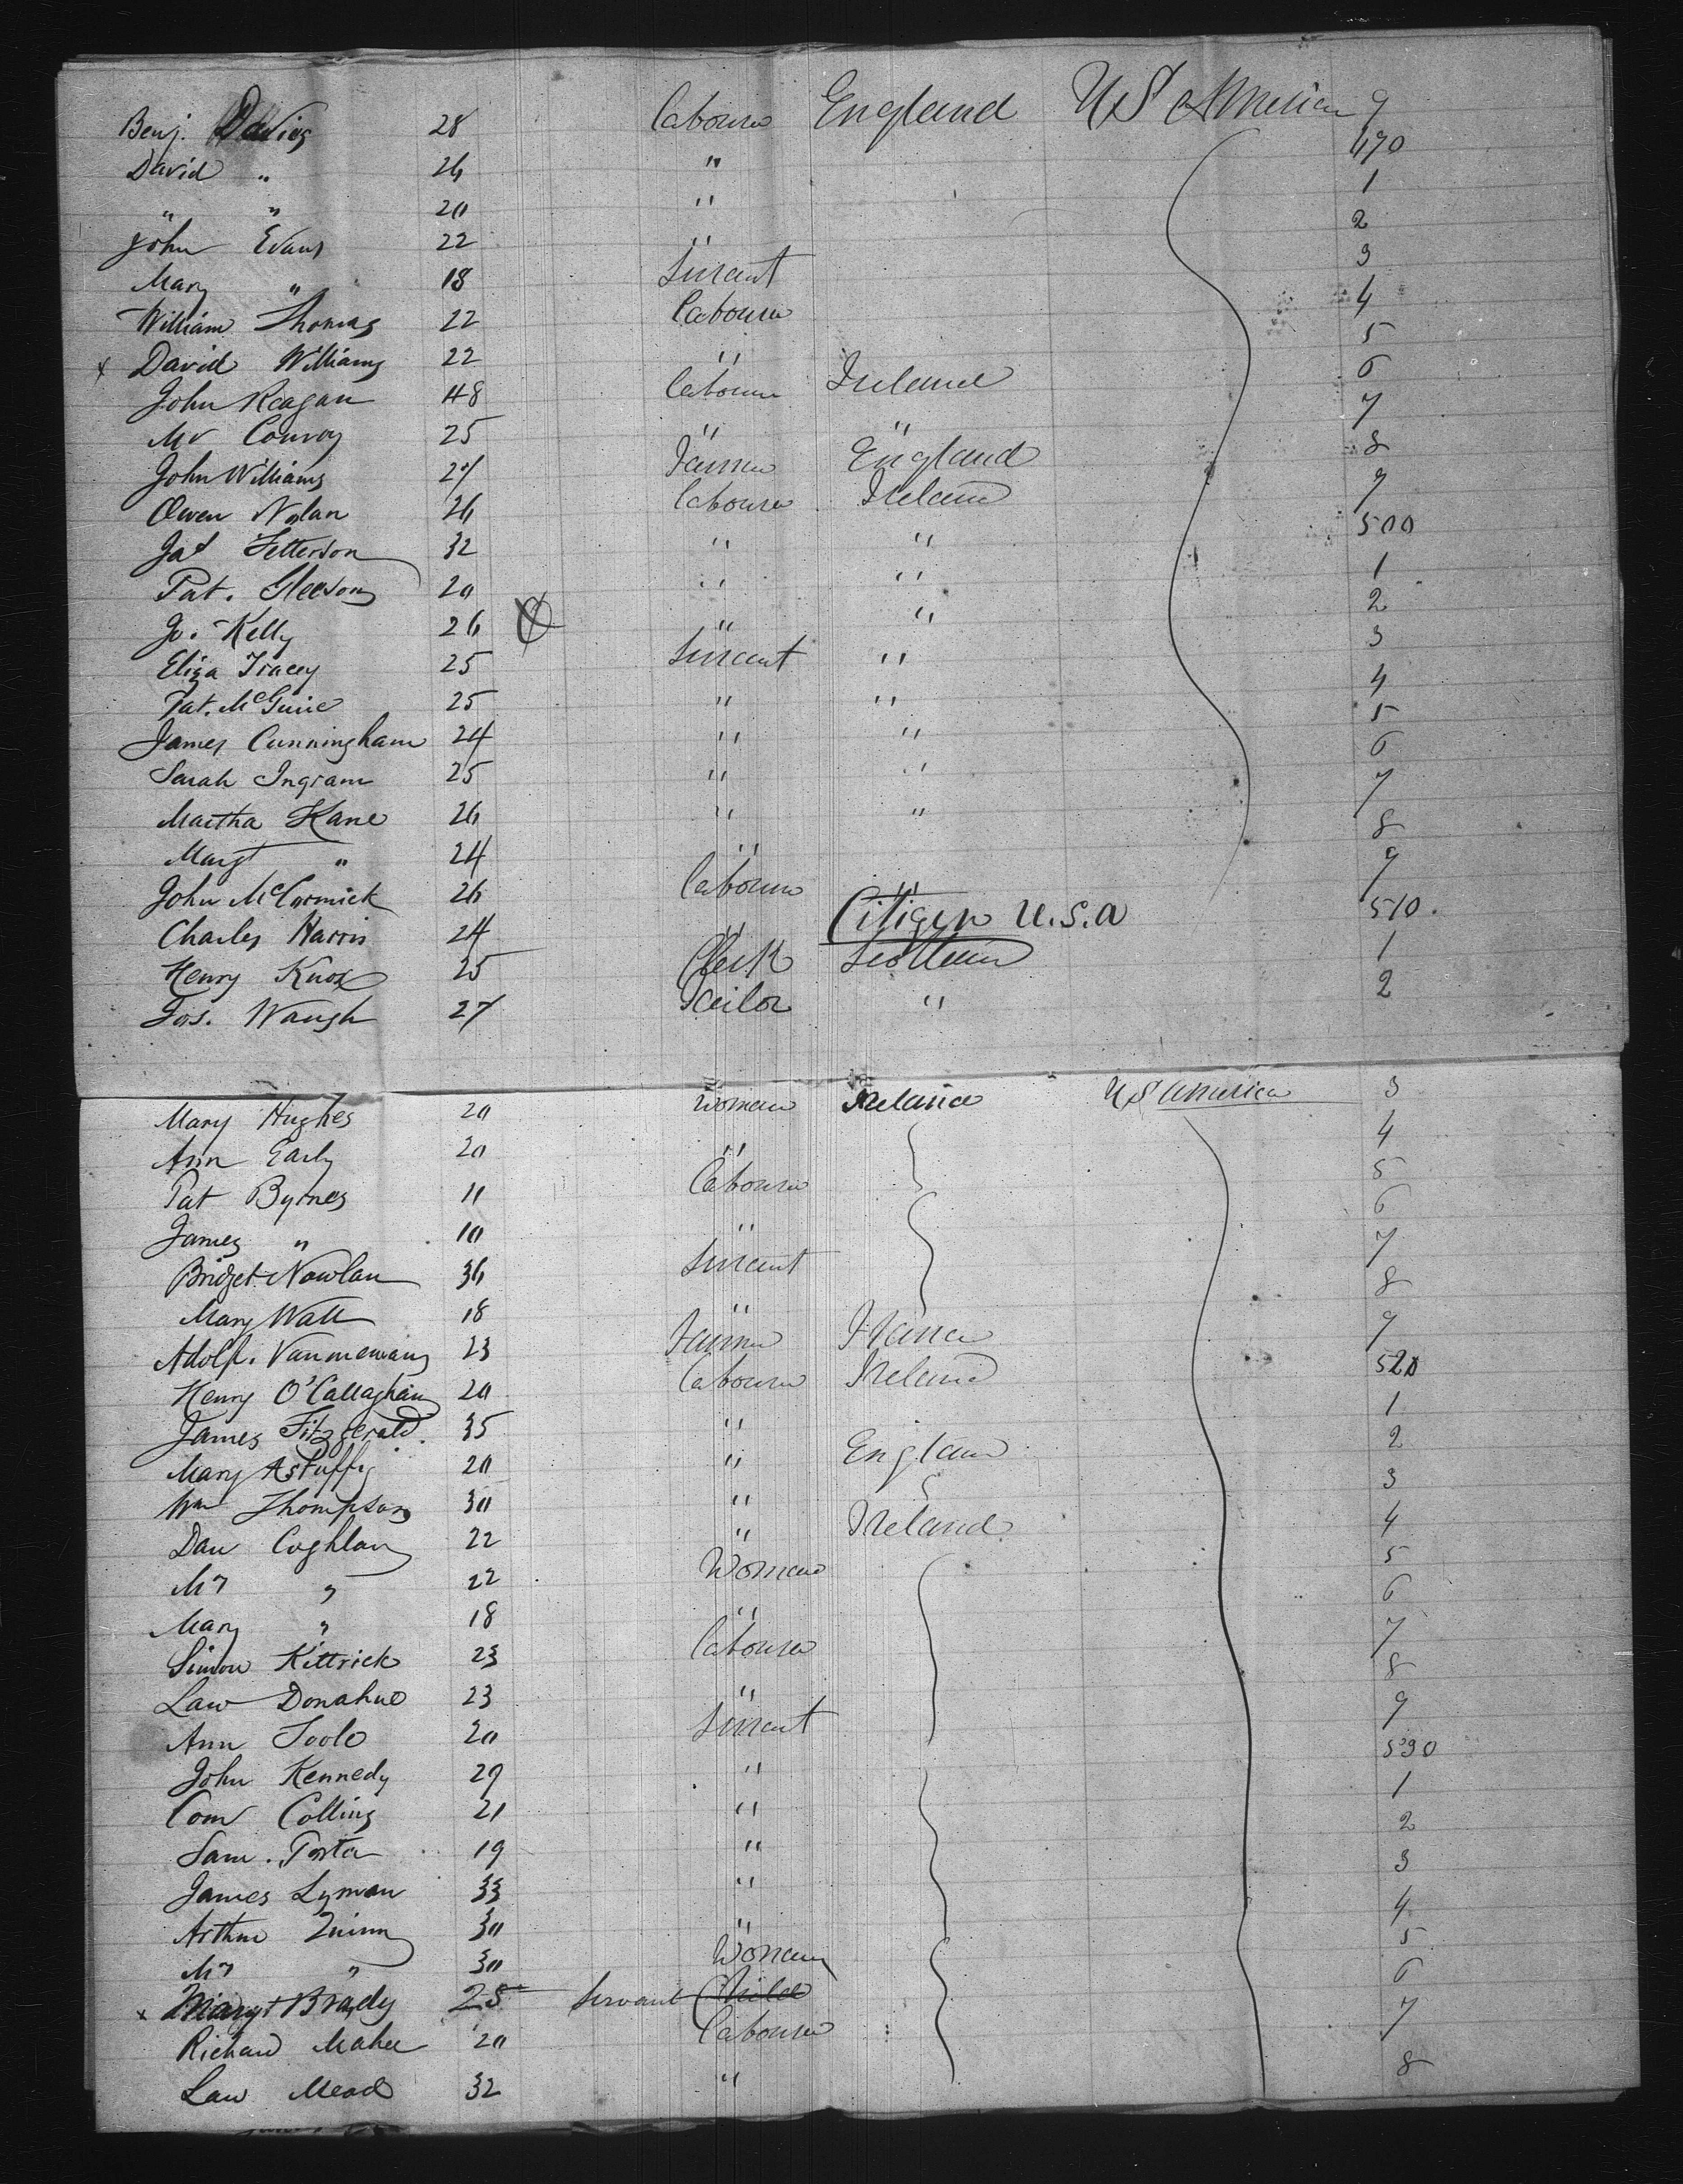 Benj. Davies 28 Labourer England U S America 9
David " 26 " 490
" " 20 " 1
John Evans 22 " 2
Mary " 18 Servant 3
William Thomas 22 Labourer 4
x David Williams 22 " 5
John Reagan 48 Labourer Ireland 6
Mr Conroy 25 " " 7
John Williams 27 Farmer England 8
Owen Nolan 26 Labourer Ireland 9
Jas Fetterson 32 " " 500
Pat. Gleeson 20 " " 1
Jo. Kelly 26 " " 2
Eliza Tracey 25 Servant " 3
Pat. McGuire 25 " " 4
James Cunningham 24 " " 5
Sarah Ingram 25 " " 6
Martha Kane 26 " " 7
Margt " 24 " 8
John McCormick 26 Labourer " 9
Charles Harris 24 " Citizen U.S.A 510.
Henry Knox 25 Clerk Scotland 1
Jos. Waugh 27 Tailor " 2
Mary Hughes 20 Woman Ireland U S America 3
Ann Early 20 " 4
Pat Byrnes 11 Labourer 5
James " 10 " 6
Bridget Nowlan 36 Servant 7
Mary Wall 18 " 8
Adolf. 23 Farmer 9
Henry O'Callaghan 20 Labourer Ireland 520
James Fitzgerald. 35 " 1
Mary 20 " England 2
Wm Thompson 30 " 3
Dan Coghlan 22 " Ireland 4
Mrs " 22 Woman 5
Mary " 18 " 6
Simon Kittrick 23 Labourer 7
Law Donahue 23 " 8
Ann Toole 20 Servant 9
John Kennedy 29 " 530
Com Collins 21 " 1
Sam. Porter 19 " 2
James Lyman 33 " 3
Arthur Quinn 30 " 4
Mrs " 30 Woman 5
x Margt Brady 25 Servant Child 6
Richard Maher 20 Labourer 7
Law Mead 32 " 8